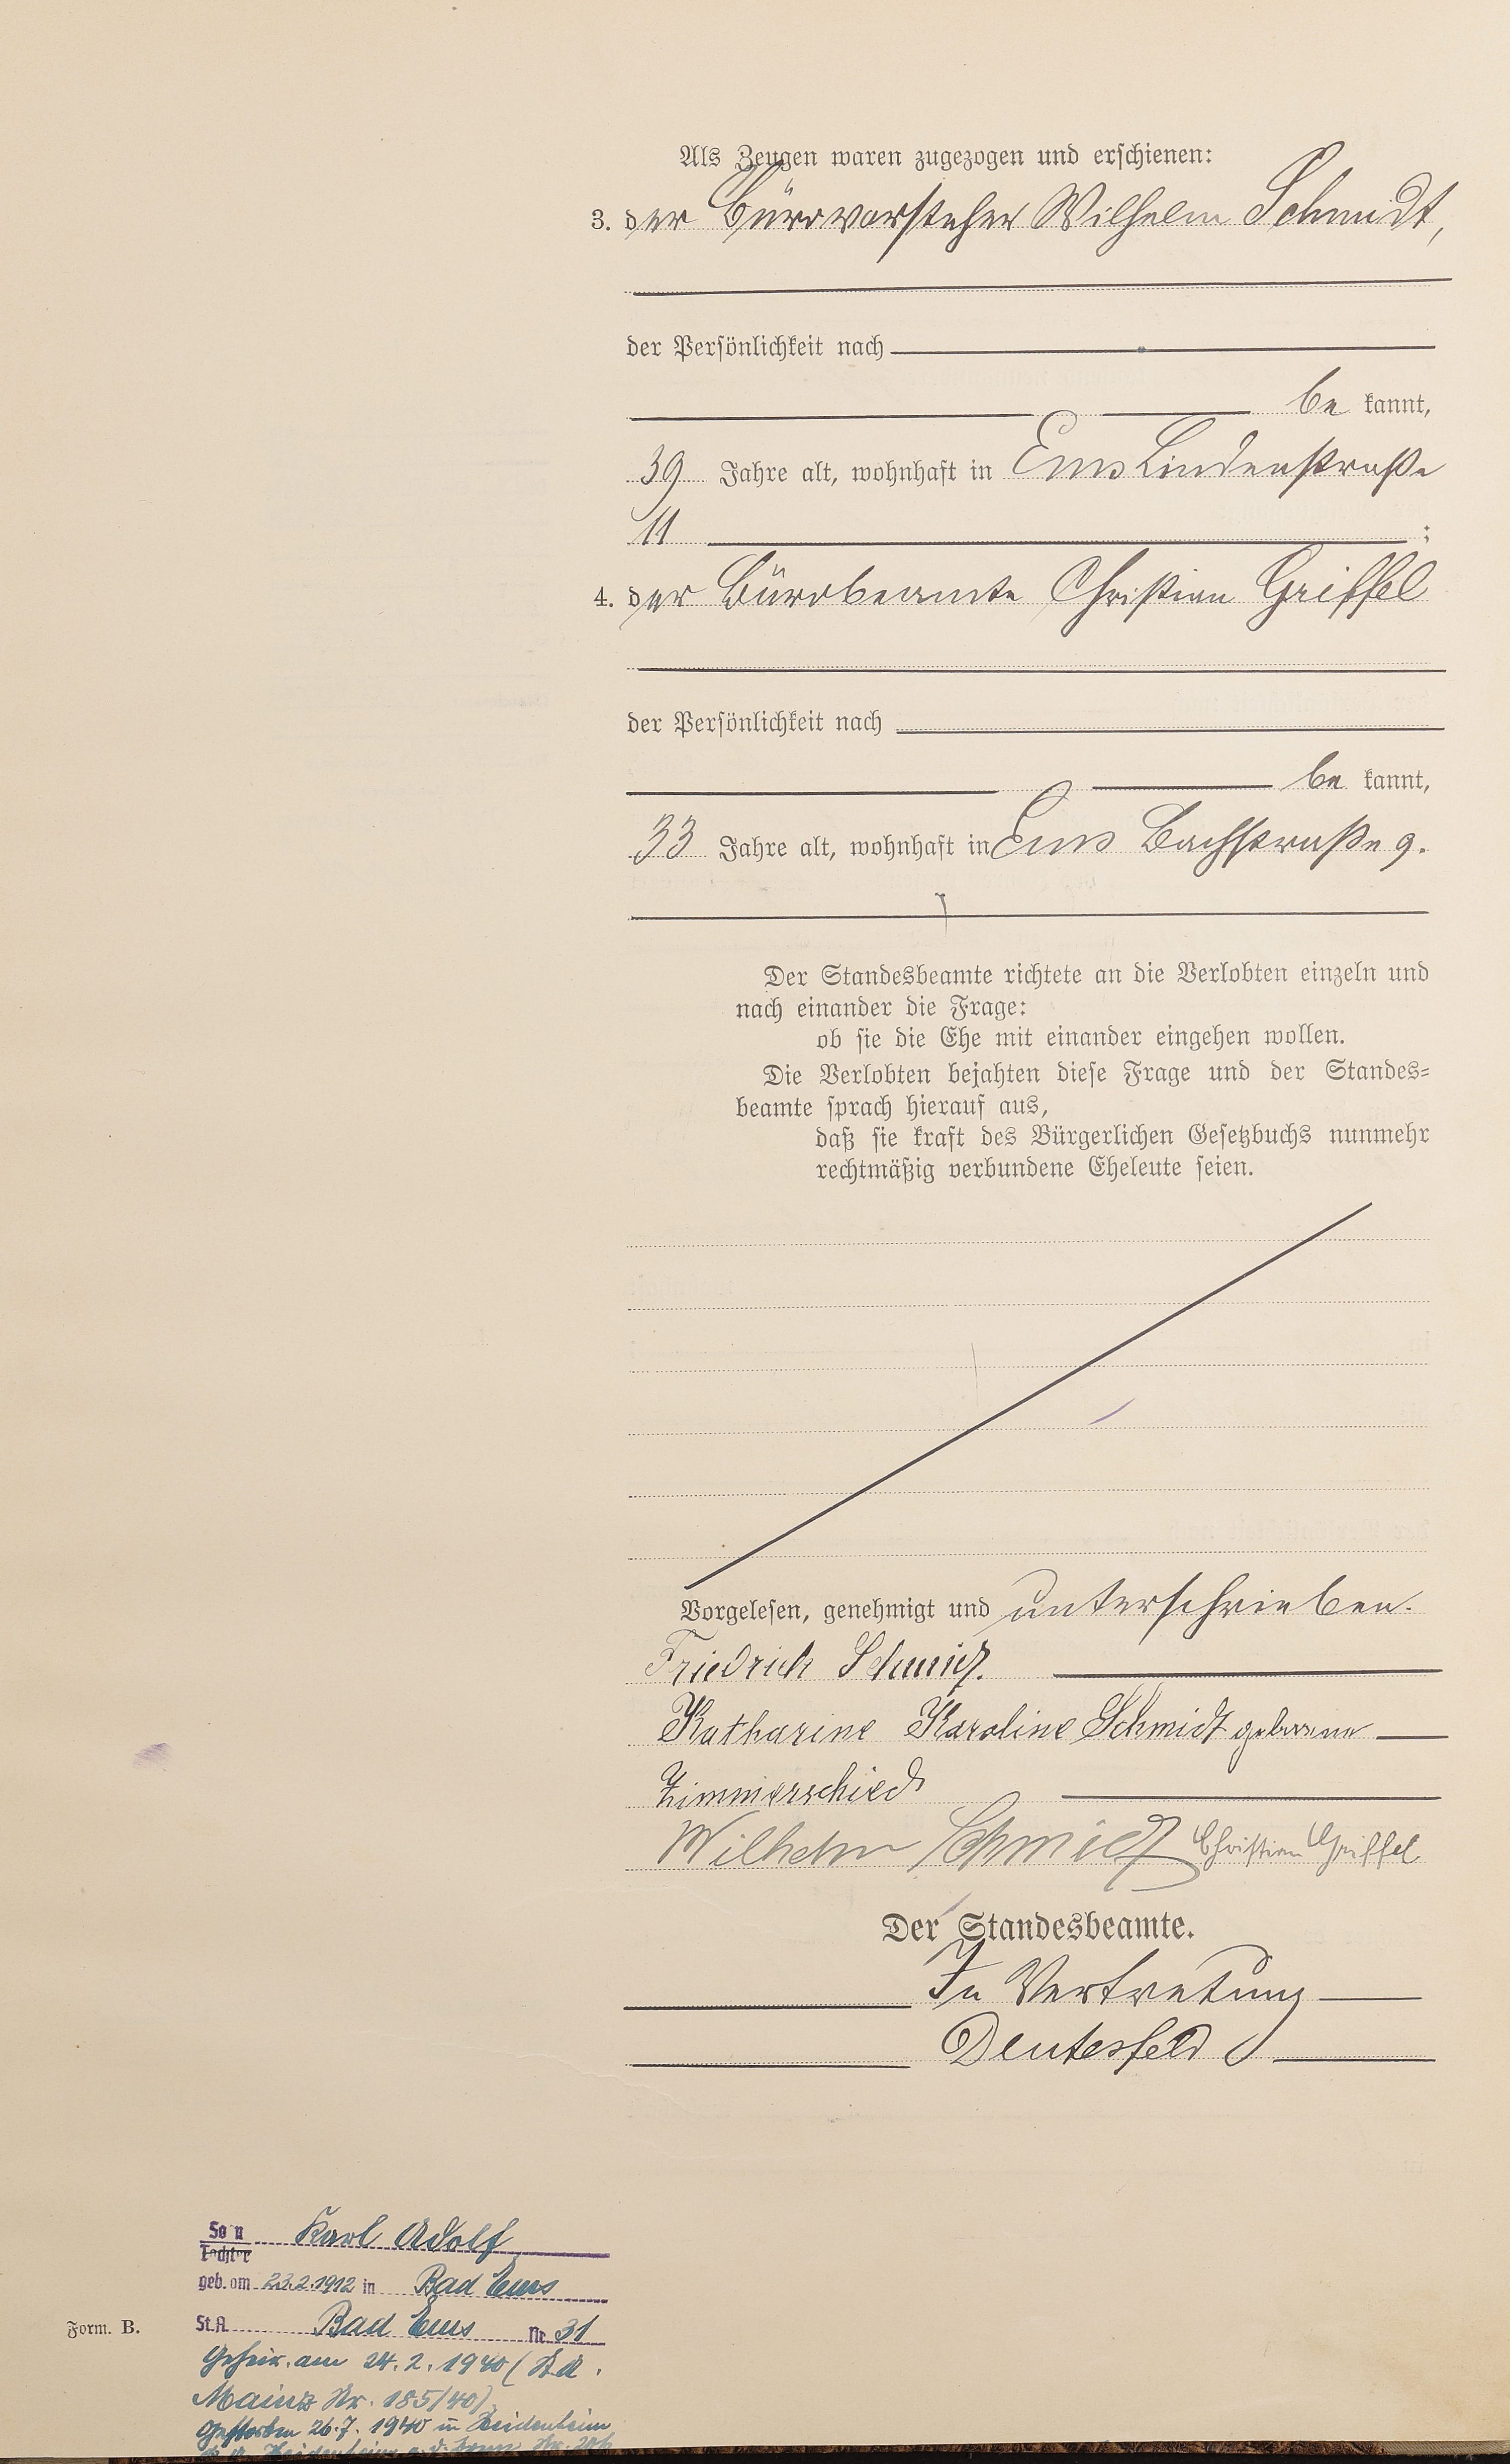 Als Zeugen waren zugezogen und erschienen:
3. der Bürovorsteher Wilhelm Schmidt,
der Persönlichkeit nach
be kannt,
39 Jahre alt, wohnhaft in Ems Lindenstraße
11 ;
4. der Bürobeamte Christian Griffel
der Persönlichkeit nach
be kannt,
33 Jahre alt, wohnhaft in Ems Bachstraße 9.
Der Standesbeamte richtete an die Verlobten einzeln und
nach einander die Frage:
ob sie die Ehe mit einander eingehen wollen.
Die Verlobten bejahten diese Frage und der Standes-
beamte sprach hierauf aus,
daß sie kraft des Bürgerlichen Gesetzbuchs nunmehr
rechtmäßig verbundene Eheleute seien.
Vorgelesen, genehmigt und unterschrieben.
Friedrich Schmidt.
Katharine Karoline Schmidt geborene
Zimmerschied
Wilhelm Schmidt Christian Griffel
Der Standesbeamte.
In Vertretung
Deutesfeld
Sohn Karl Adolf
Tochter
geb. am 23.2.1912 in Bad Ems
St.A. Bad Ems Nr. 31
Form. B.
Geheir. am 24.2.1940 (St.A.
Mainz Nr. 185/40)
Gestorben 26.7.1940 in Heidenheim
St.A. Heidenheim a.d. Brenz Nr.